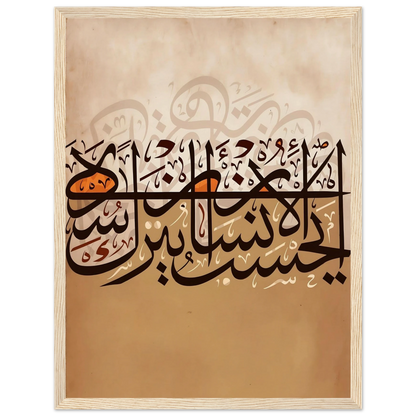 أيحسب الإنسان أن يترك سدى